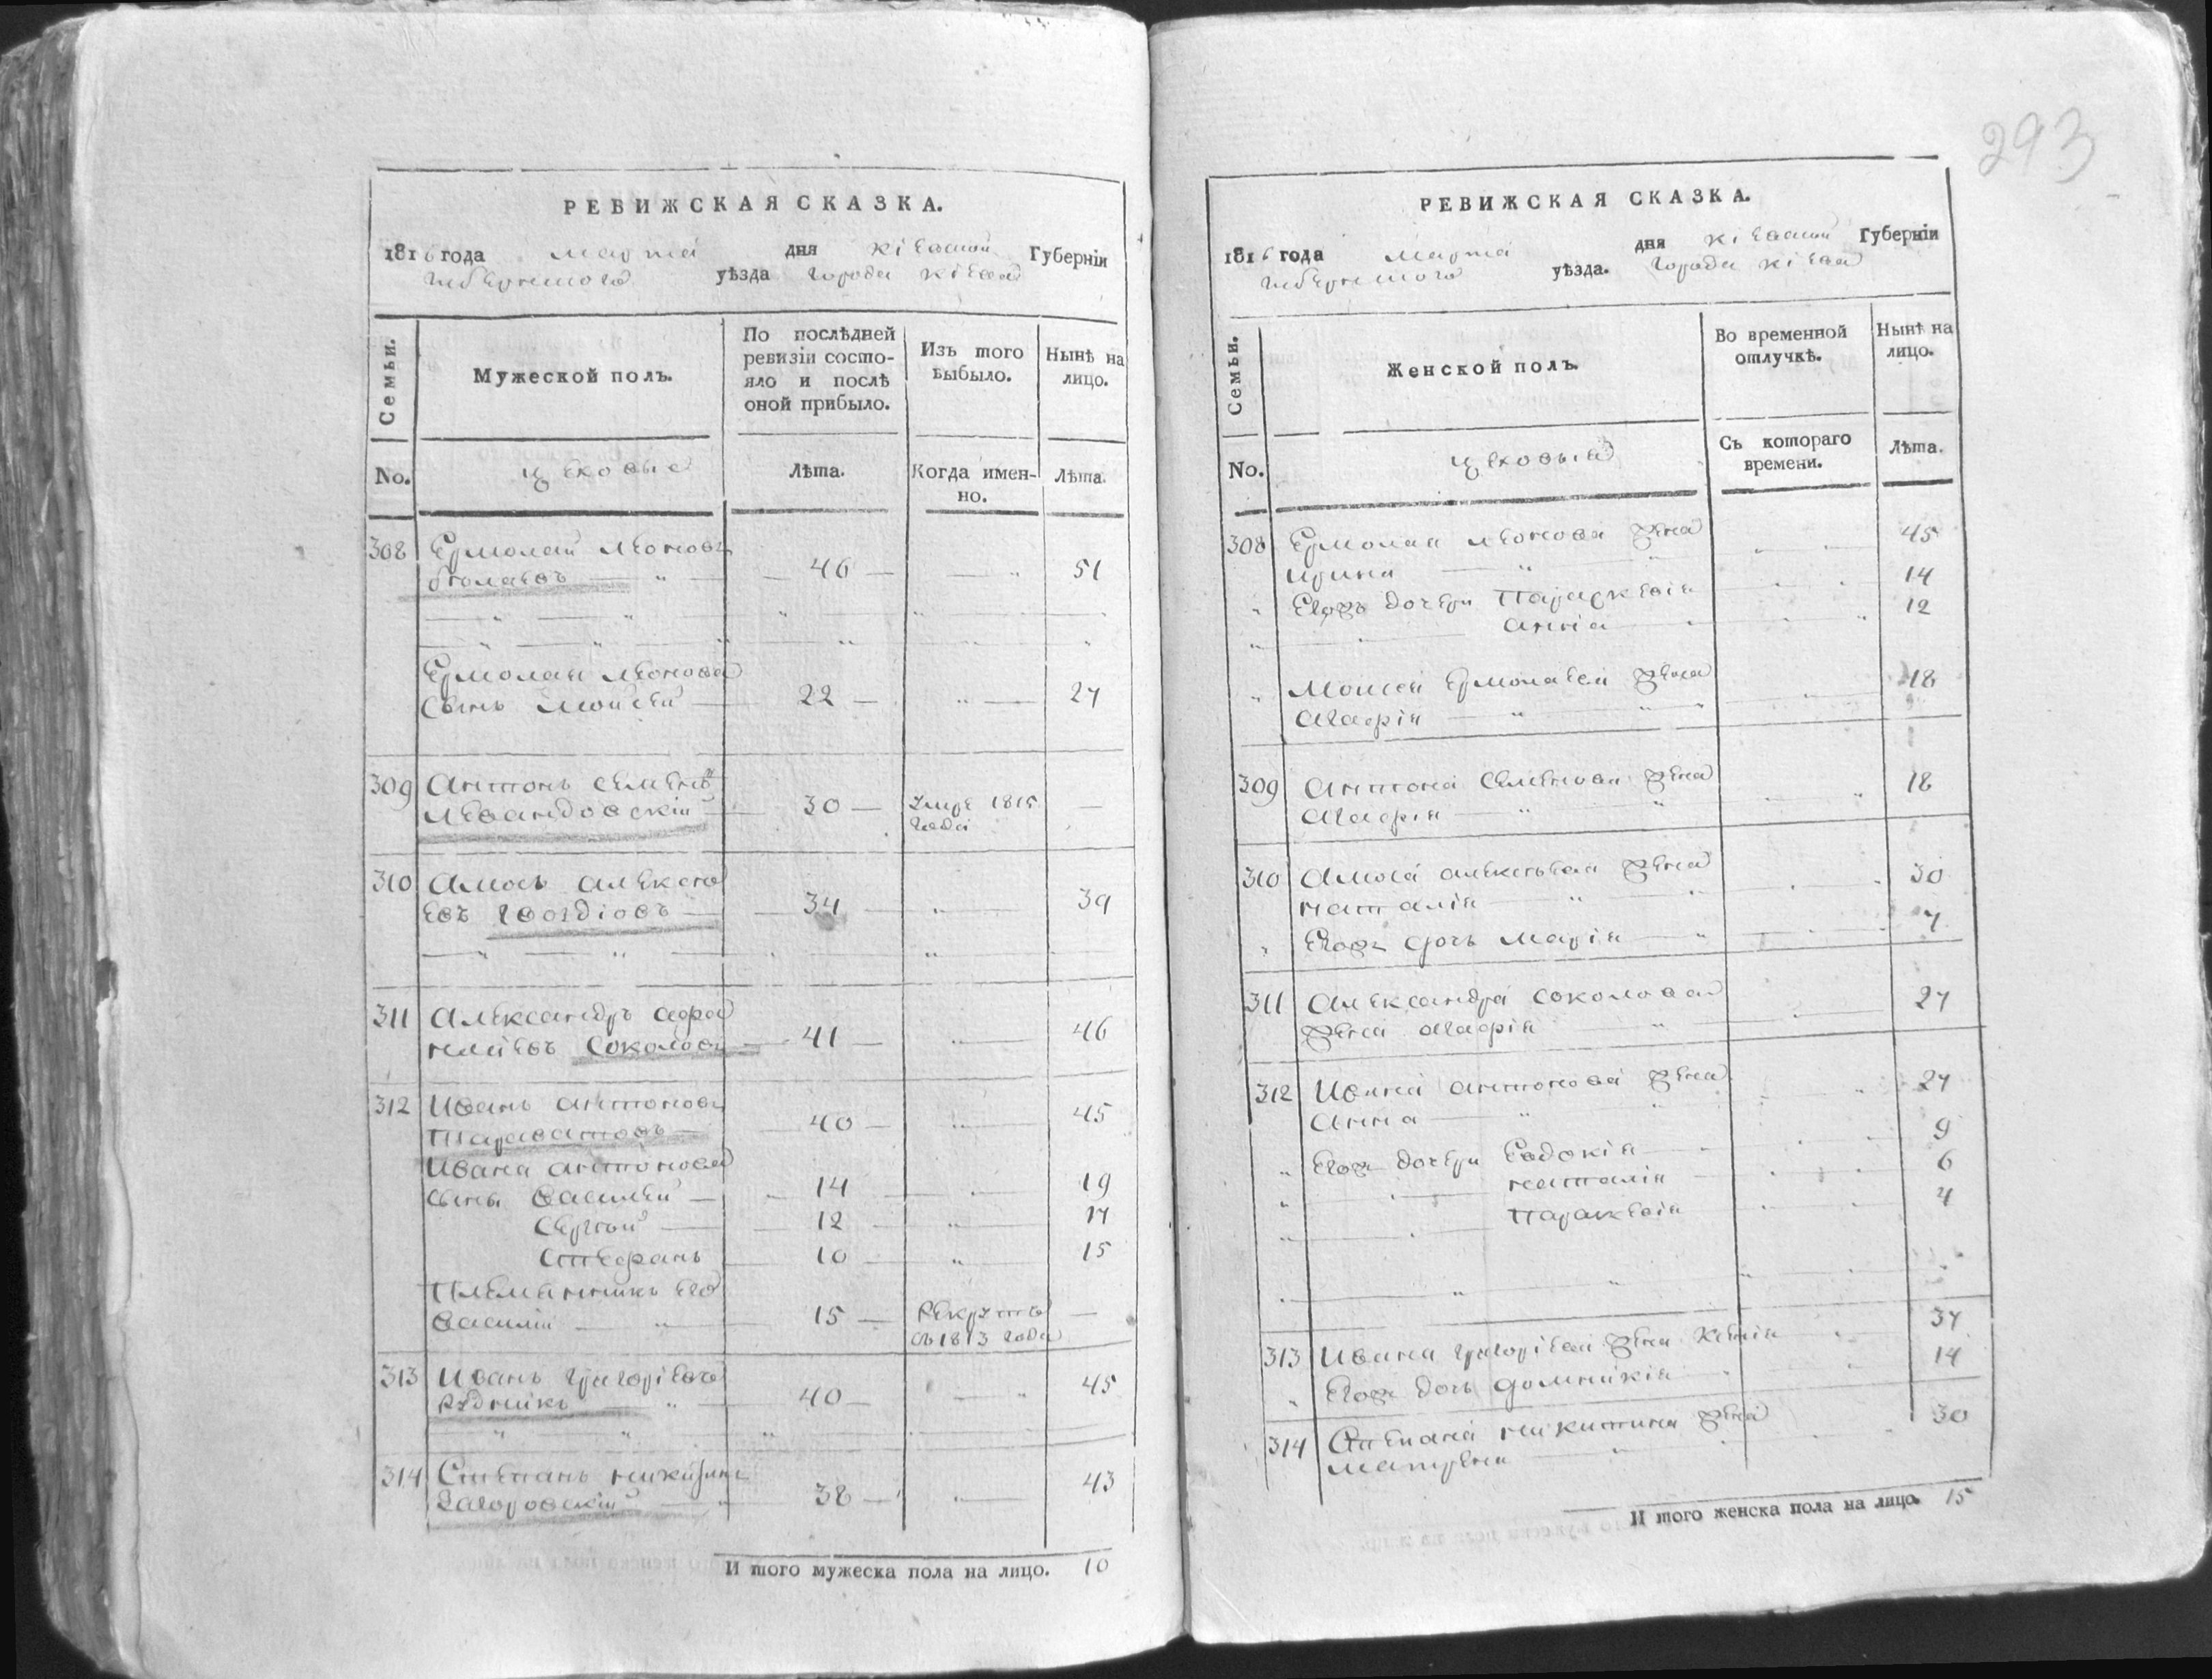 293
РЕВИЖСКАЯ СКАЗКА.
1816 года марта дня кіевской Губерніи
губернского уѣзда города кіева
Семьи.
Мужеской полъ.
По послѣдней ревизіи состояло и послѣ оной прибыло.
Изъ того выбыло.
Нынѣ на лицо.
No.
цеховые
Лѣта.
Когда именно.
Лѣта.
308 Ермолай леоновъ
46 51
Ермолая леонова
сынъ Мойсей 22 27
309 Антонъ семеновъ
левандовскій 30 умре 1815 года
310 Амосъ алексѣ
евъ гвоздіовъ 34 39
311 Александръ афа
насіевъ соколовъ 41 46
312 Иванъ антоновъ
40 45
Ивана антонова
сыны Василей 14 19
Сергѣй 12 17
Стефанъ 10 15
племянникъ его
василій 15 Рекрутъ съ 1813 года
313 Иванъ григоріевъ
Рудникъ 40 45
314 Степанъ никитинъ
Загоровскій 38 43
И того мужеска пола на лицо. 10
РЕВИЖСКАЯ СКАЗКА.
1816 года марта дня кіевской Губерніи
губернского уѣзда. города кіева
Семьи.
Женской полъ.
Во временной отлучкѣ.
Нынѣ на лицо.
No.
цеховыя
Съ котораго времени.
Лѣта.
308 Ермолая леонова жена
ирина 45
Егожъ дочери Параскевія 14
анна 12
Моисея Ермолаева жена
агафія 18
309 Антона семенова жена
агафія 18
310 Амоса алексѣева жена
наталія 30
Егожъ дочь марія 7
311 Александра соколова
жена агафія 27
312 Ивана антонова жена
анна 27
Егожъ дочери Евдокія 9
наталія 6
Параскевія 4
313 Ивана григоріева жена Ксенія 37
Егожъ дочь домникія 14
314 Степана никитина жена
матрена 30
И того женска пола на лицо. 15